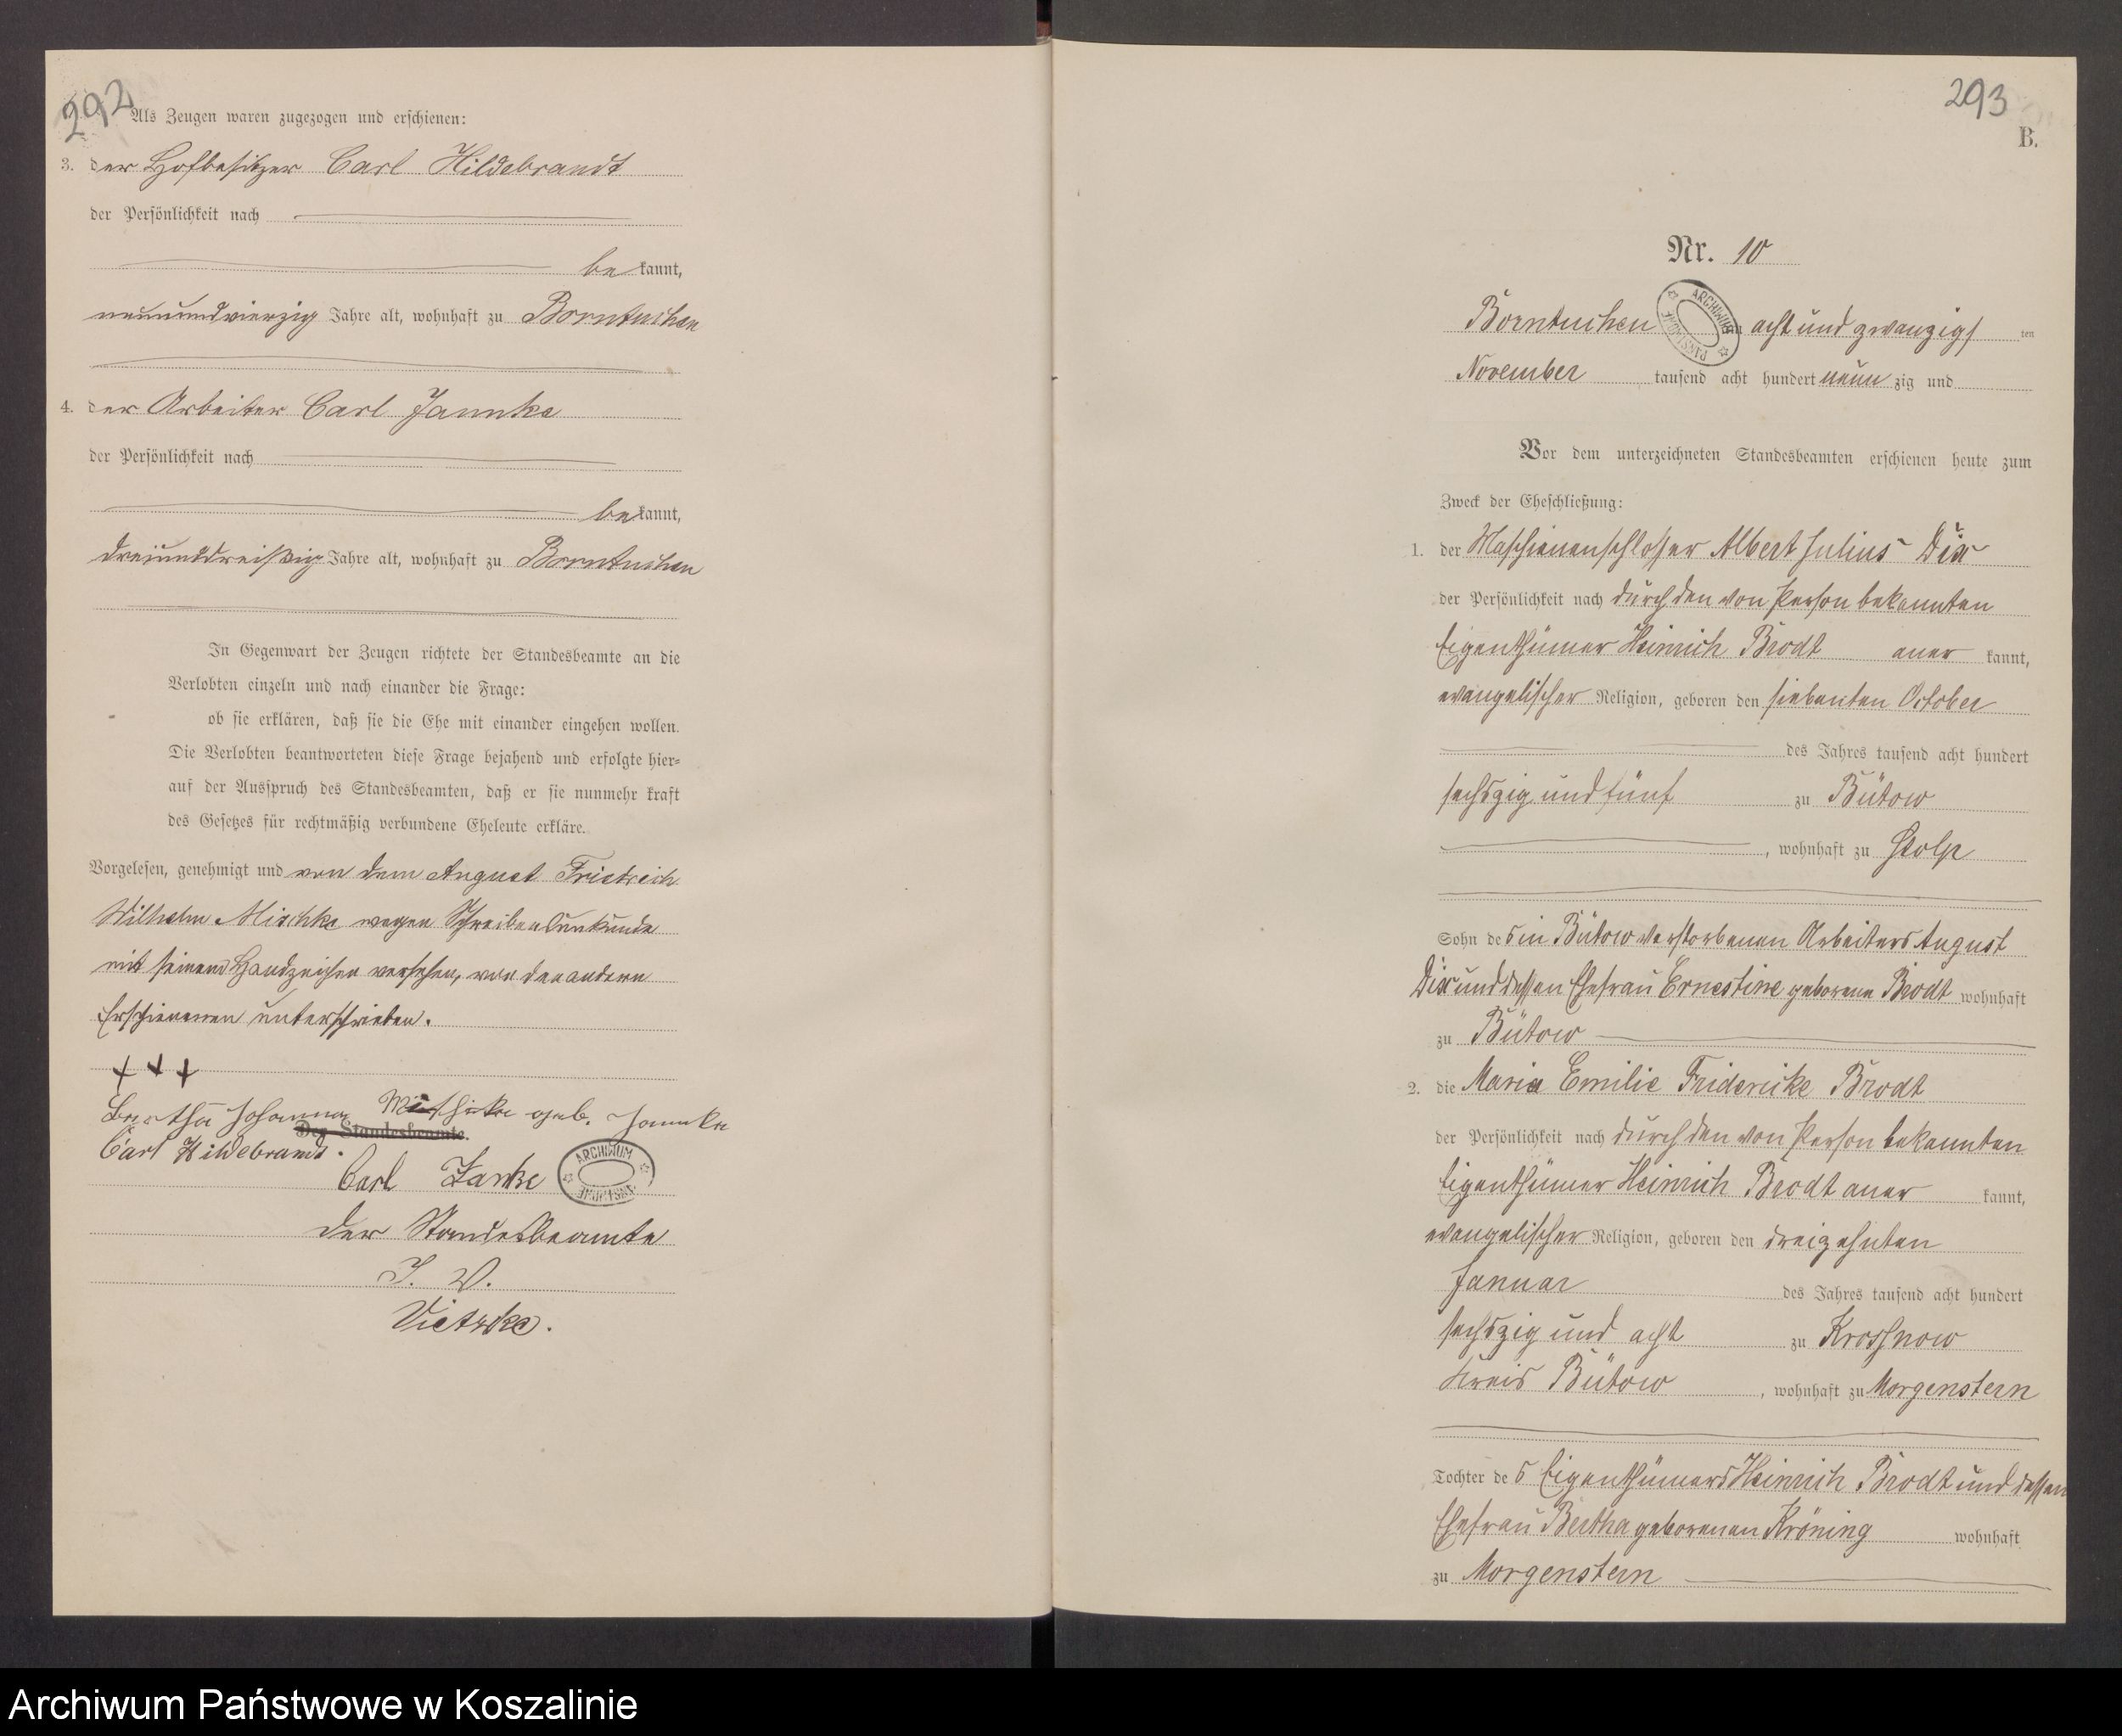 292
Als Zeugen waren zugezogen und erschienen:
3. der Hofbesitzer Carl Hildebrandt
der Persönlichkeit nach
be kannt,
neunundvierzig Jahre alt, wohnhaft zu Borntuchen
4. der Arbeiter Carl Jannke
der Persönlichkeit nach
be kannt,
dreiunddreißig Jahre alt, wohnhaft zu Borntuchen
In Gegenwart der Zeugen richtete der Standesbeamte an die
Verlobten einzeln und nach einander die Frage:
ob sie erklären, daß sie die Ehe mit einander eingehen wollen.
Die Verlobten beantworteten diese Frage bejahend und erfolgte hier-
auf der Ausspruch des Standesbeamten, daß er sie nunmehr kraft
des Gesetzes für rechtmäßig verbundene Eheleute erkläre.
Vorgelesen, genehmigt und von dem August Friedrich
Wilhelm Mischke wegen Schreibensunkunde
mit seinem Handzeichen versehen, von den andern
Erschienenen unterschrieben.
+ + +
Bertha Johanna Mischke geb. Jannke
Der Standesbeamte.
Carl Hildebrandt.
Carl Janke
ARCHIWUM
Der Standesbeamte
J. V.
Vietzke.
293
B.
Nr. 10
Borntuchen am acht und zwanzigs ten
ARCHIWUM
November tausend acht hundert neun zig und
Vor dem unterzeichneten Standesbeamten erschienen heute zum
Zweck der Eheschließung:
1. der Maschienenschlosser Albert Julius Dix
der Persönlichkeit nach durch den von Person bekannten
Eigenthümer Heinrich Brodt aner kannt,
evangelischer Religion, geboren den siebenten October
des Jahres tausend acht hundert
sechszig und fünf zu Bütow
, wohnhaft zu Stolp
Sohn des in Bütow verstorbenen Arbeiters August
Dix und dessen Ehefrau Ernestine geborene Brodt wohnhaft
zu Bütow
2. die Maria Emilie Fridericke Brodt
der Persönlichkeit nach durch den von Person bekannten
Eigenthümer Heinrich Brodt aner kannt,
evangelischer Religion, geboren den dreizehnten
Januar des Jahres tausend acht hundert
sechszig und acht zu Krossnow
Kreis Bütow , wohnhaft zu Morgenstern
Tochter des Eigenthümers Heinrich Brodt und dessen
Ehefrau Bertha geborenen Kröning wohnhaft
zu Morgenstern
Archiwum Państwowe w Koszalinie